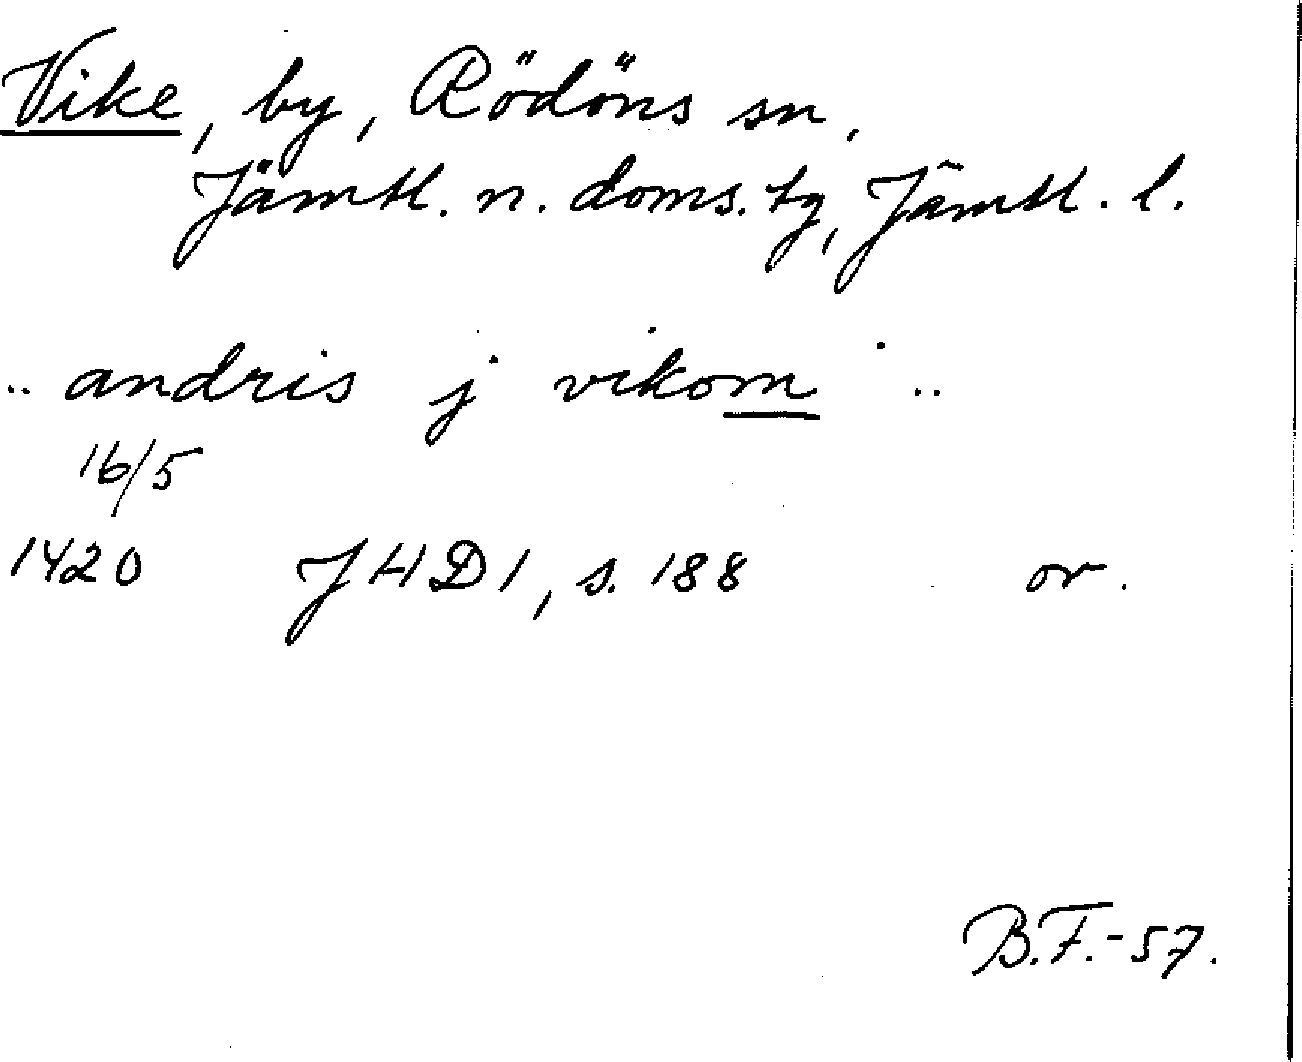 Vike, by, Rödöns sn,
Jämtl. n. doms. tg, Jämtl. l.
.. andris j vikom ..
16/5
1420 JHD 1, s. 188 or.
B.F.-57.